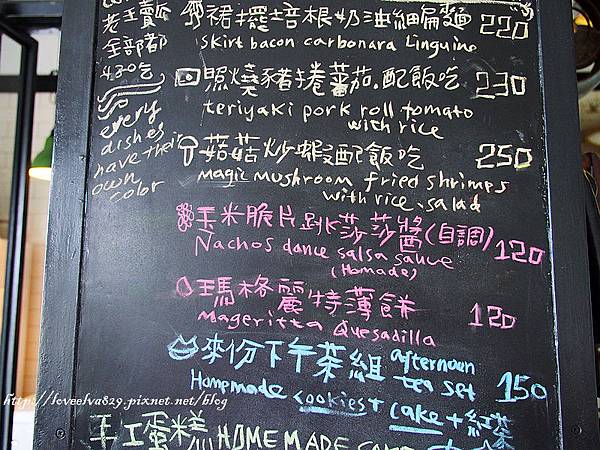 老王賣瓜
全部都
430吃
every
dishes
have their
own
color
裙擺培根奶油細扁麵 220
skirt bacon carbonara Linguine
照燒豬捲蕃茄.配飯吃 230
teriyaki pork roll tomato
with rice
菇菇炒蝦配飯吃 250
magic mushroom fried shrimps
with rice.salad
玉米脆片跳莎莎醬(自調) 120
Nachos dance salsa sauce
(Homade)
瑪格麗特薄餅 120
Mageritta Quesadilla
來份下午茶組 afternoon
tea set 150
Homemade cookies + cake + 紅茶
手工蛋糕 HOME MADE
http://loveelva829.pixnet.net/blog